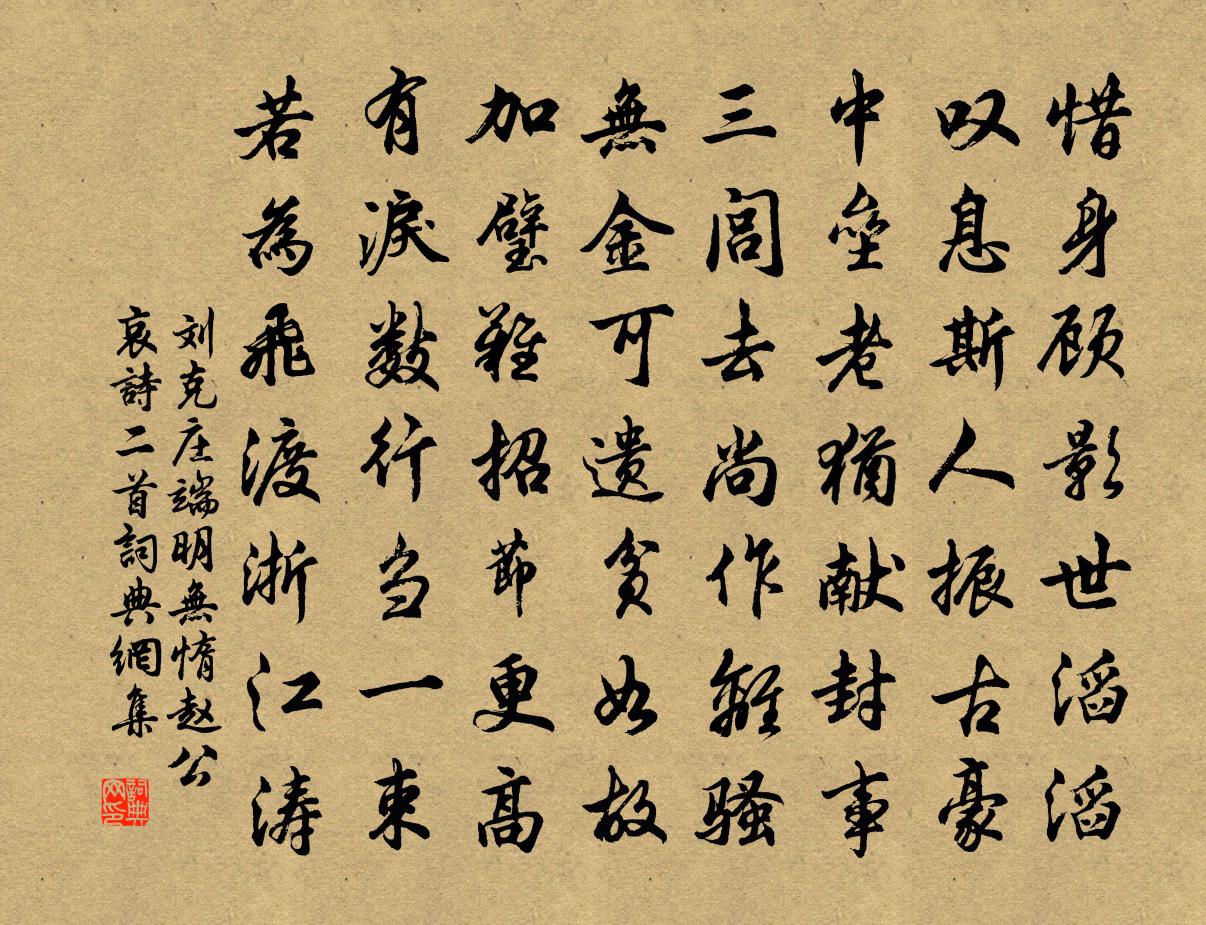 惜身顾影世滔滔
叹息斯人振古豪
中垒老犹献封事
三闾去尚作離骚
無金可遗贫如故
加璧難招節更高
有淚数行刍一束
若為飛渡浙江涛
刘克庄端明無惰赵公
哀詩二首詞典網集
詞典
网印